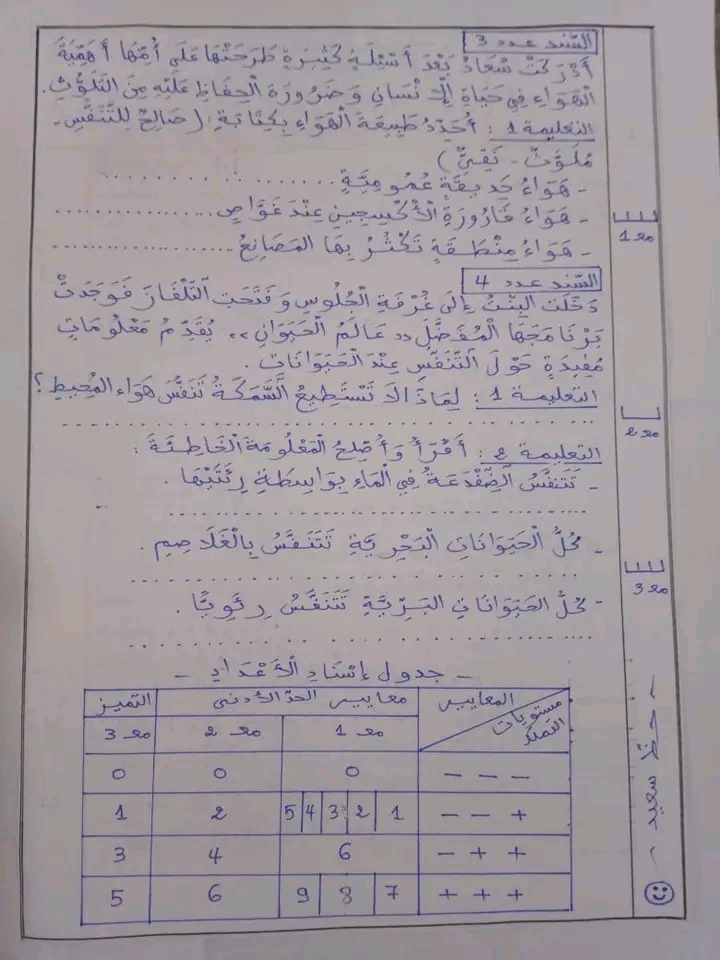 السّند عدد 3
أَدْرَكَتْ سُعَادُ بَعْدَ أَسْئِلَةٍ كَثِيرَةٍ طَرَحَتْهَا عَلَى أُمِّهَا أَهَمِّيَةَ
الْهَوَاءِ فِي حَيَاةِ الْإِنْسَانِ وَ ضَرُورَةَ الْحِفَاظِ عَلَيْهِ مِنَ التَّلَوُّثِ.
التعليمة 1 : أُحَدِّدُ طَبِيعَةَ الْهَوَاءِ بِكِتَابَةِ: ( صَالِحٌ لِلتَّنَفُّسِ -
مُلَوَّثٌ - نَقِيٌّ )
- هَوَاءُ حَدِيقَةٍ عُمُومِيَّةٍ ....................
- هَوَاءُ قَارُورَةِ الْأُكْسِجِينِ عِنْدَ غَوَّاصٍ ....................
- هَوَاءُ مِنْطَقَةٍ تَكْثُرُ بِهَا المَصَانِعُ ....................
مع 1
السّند عدد 4
دَخَلَتِ الْبِنْتُ إِلَى غُرْفَةِ الْجُلُوسِ وَ فَتَحَتِ التَّلْفَازَ فَوَجَدَتْ
بَرْنَامَجَهَا الْمُفَضَّلَ "عَالَمُ الْحَيَوَانِ" يُقَدِّمُ مَعْلُومَاتٍ
مُفِيدَةٍ حَوْلَ التَّنَفُّسِ عِنْدَ الْحَيَوَانَاتِ.
التعليمة 1 : لِمَاذَا لَا تَسْتَطِيعُ السَّمَكَةُ تَنَفُّسَ هَوَاءِ المُحِيطِ؟
........................................
مع 2
التعليمة 2 : أَقْرَأُ وَ أُصْلِحُ الْمَعْلُومَةَ الْخَاطِئَةَ :
- تَتَنَفَّسُ الضِّفْدَعَةُ فِي الْمَاءِ بِوَاسِطَةِ رِئَتَيْهَا .
........................................
- كُلُّ الْحَيَوَانَاتِ الْبَحْرِيَّةِ تَتَنَفَّسُ بِالْغَلَاصِمِ .
........................................
مع 3
- كُلُّ الحَيَوَانَاتِ البَرِّيَّةِ تَتَنَفَّسُ رِئَوِيًّا .
........................................
- جدول إسْنَادِ الْأَعْدَادِ -
المعايير
مستويات التملّك
معايير الحدّ الأدنى
التميز
مع 1
مع 2
مع 3
- - -
0
0
0
+ - -
1 2 3 4 5
2
1
+ + -
6
4
3
+ + +
7 8 9
6
5
~ حظ سعيد ~